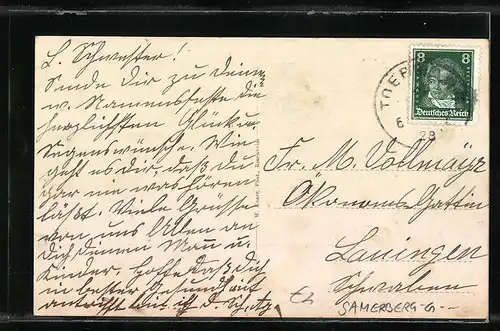 L. Schwester!
Sende Dir zu Deinem
w. Namensfeste die
herzlichsten Glück u.
Segenswünsche. Wie
geht es Dir, daß Du
gar nie was hören
läßt. Viele Grüsse
von uns Allen an
Dich Deinen Mann u.
Kinder. Hoffe daß Dich
in bester Gesundheit
antrifft
8 8
Deutsches Reich
TOER
28
Fr. M. Vollmayr
Ökonoms Gattin
Lauingen
Schwaben
SAMERBERG-G-